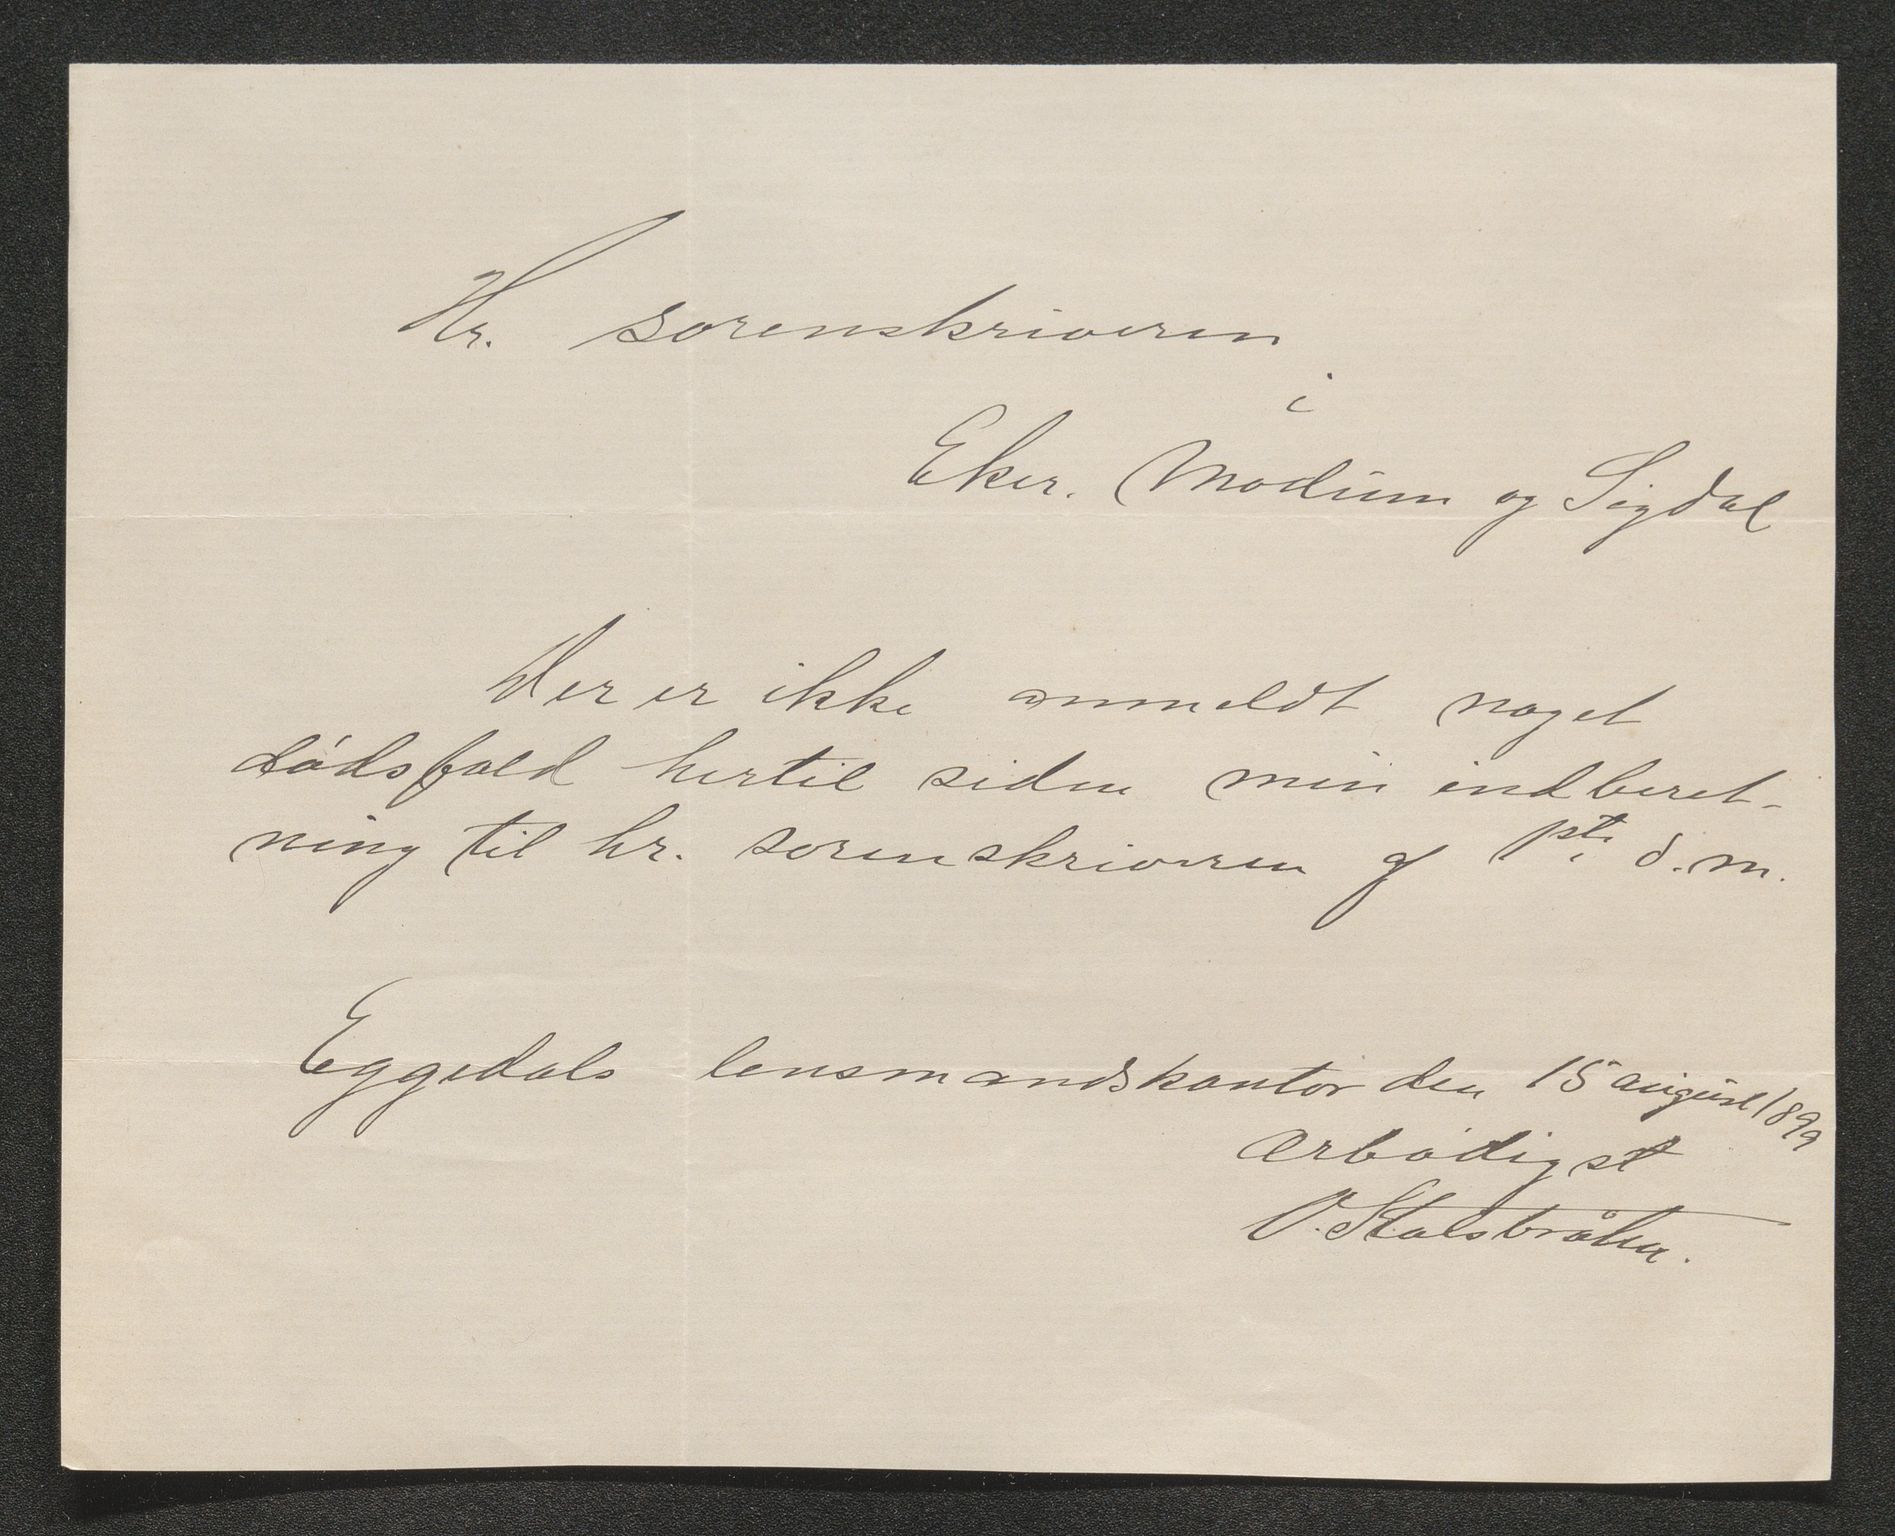 Hr. sorenskriveren
i
Eker. Modum og Sigdal
Der er ikke anmeldt noget
dødsfald hertil siden min indberet-
ning til hr. sorenskriveren af 1ste d.m.
Eggedals lensmandskontor den 15 august 1899
ærbødigst
O. Stalsbråten.